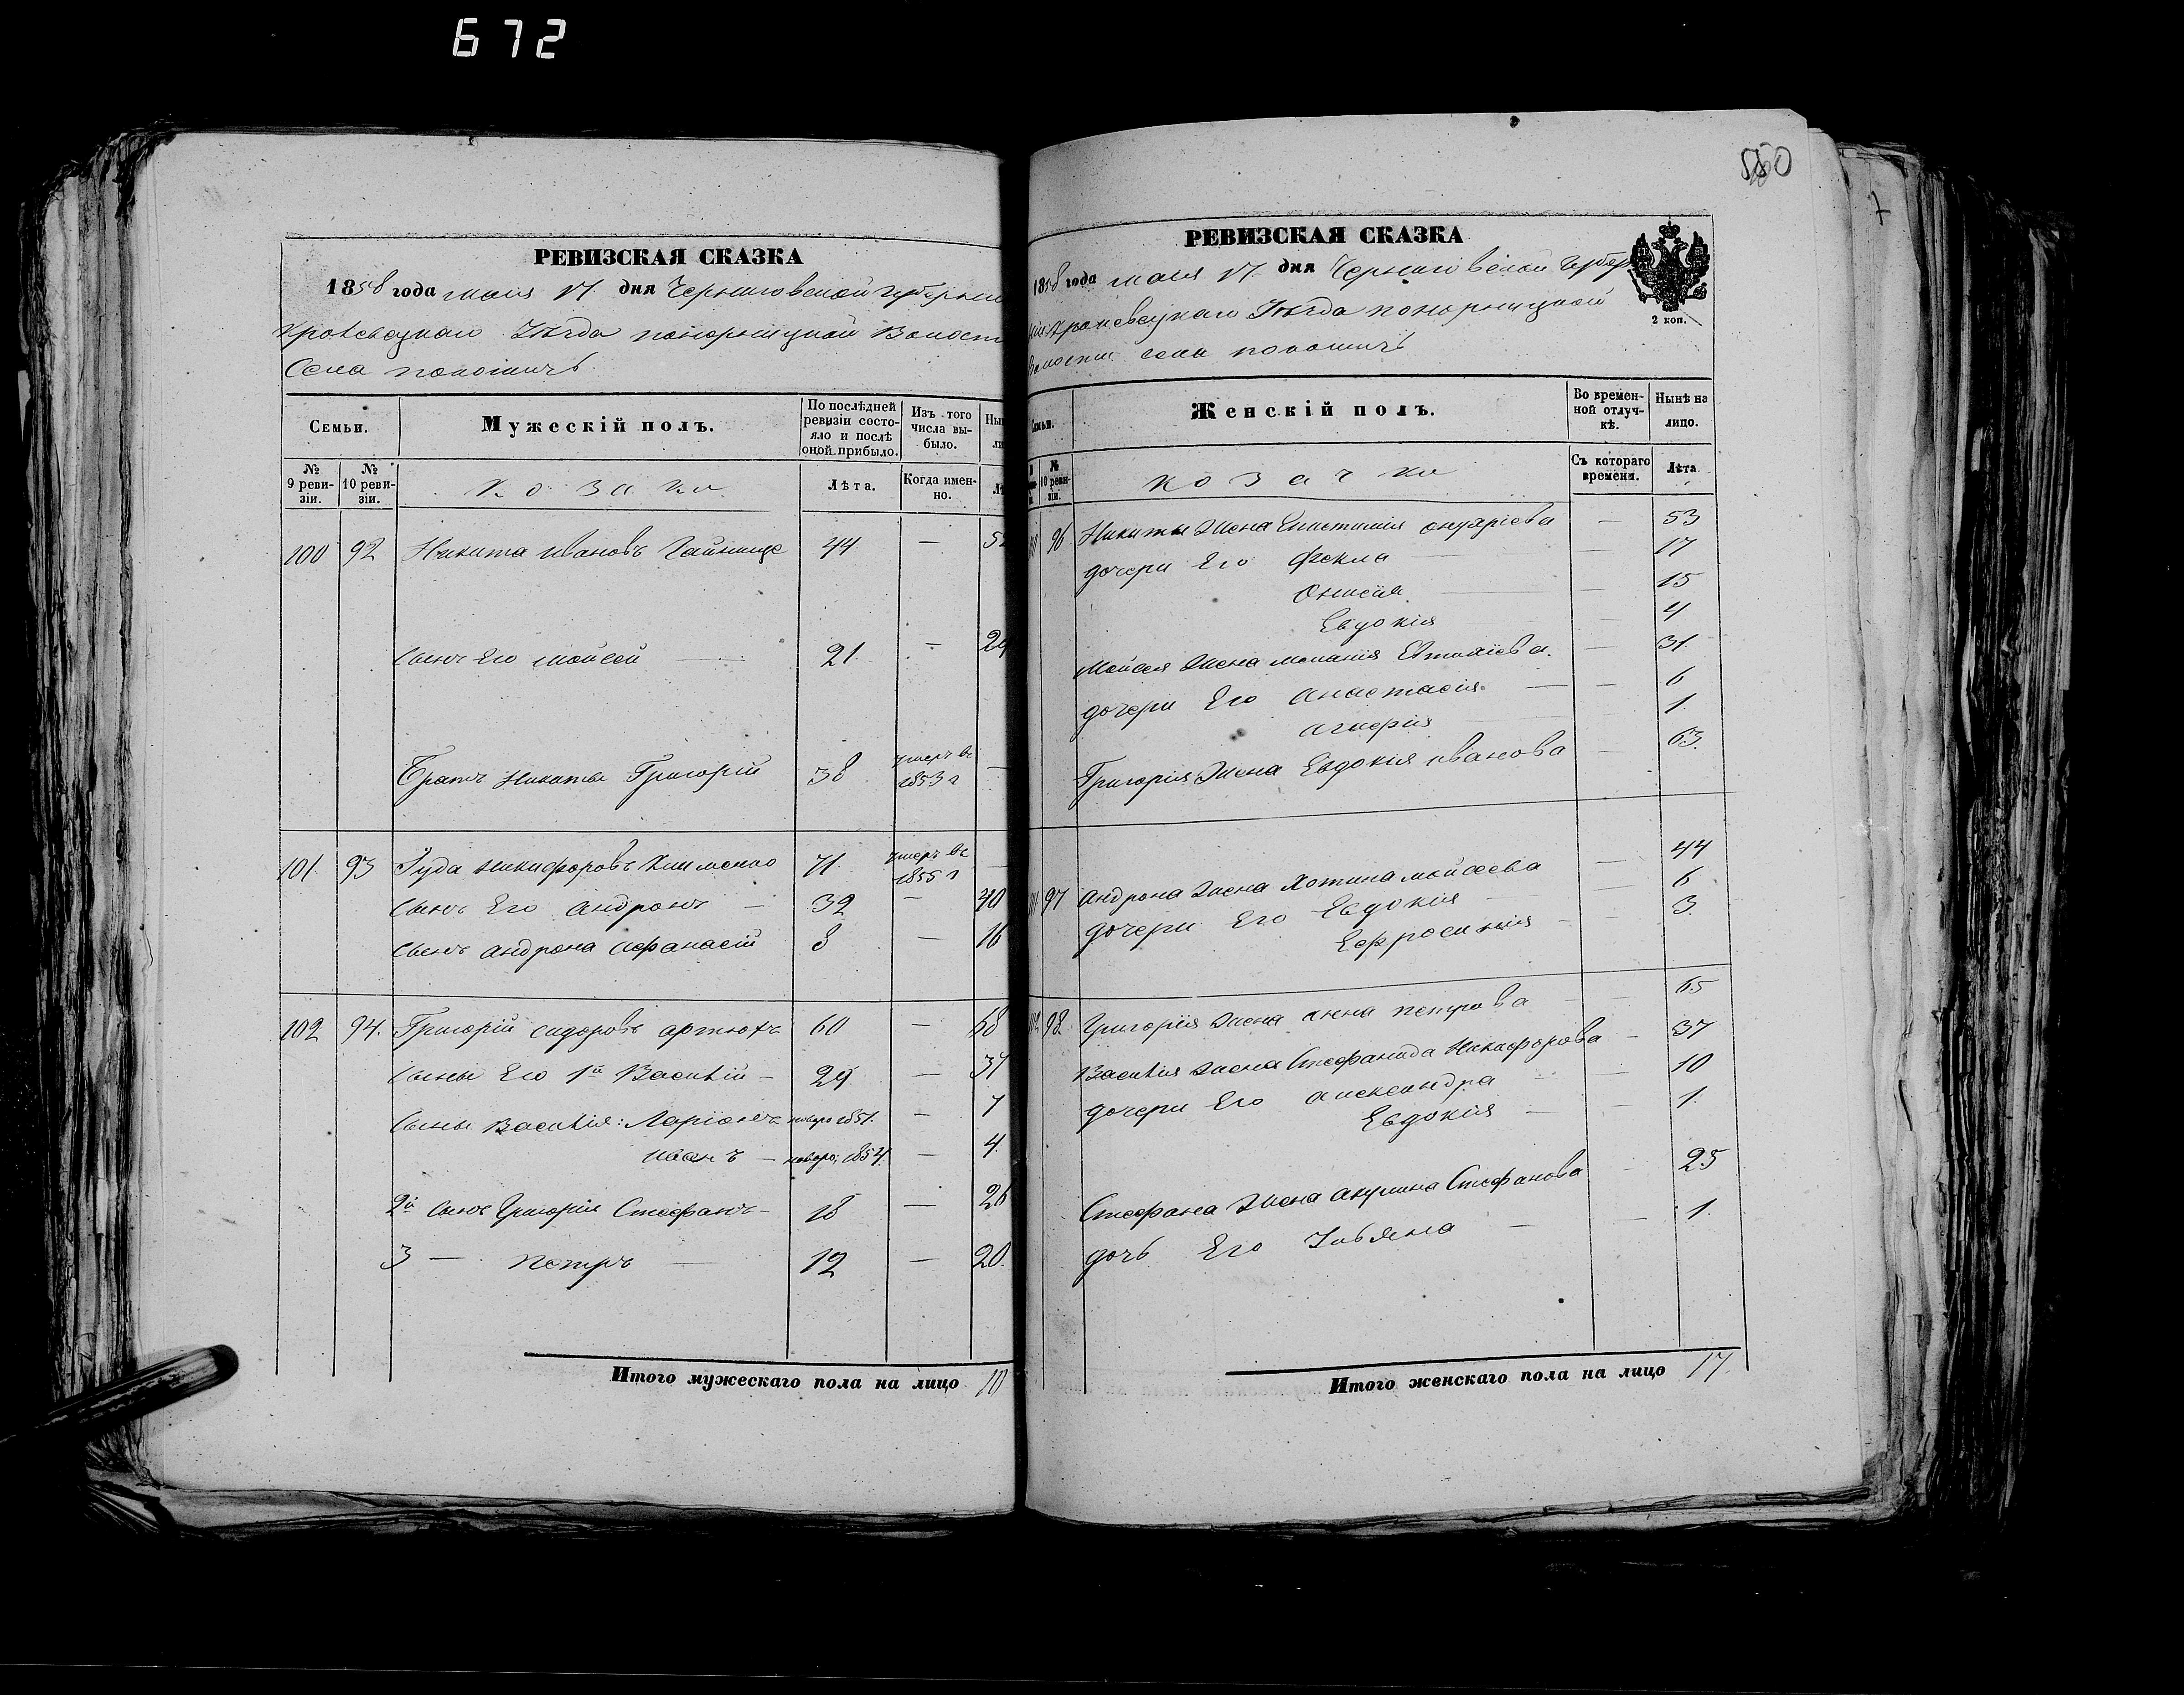 672
550
7
РЕВИЗСКАЯ СКАЗКА
1858 года мая 17 дня Черниговской Губерніи
Кролевецкаго Уѣзда понорницкой Волост
Села
Семьи.
Мужескій полъ.
По послѣдней ревизіи состояло и послѣ оной прибыло.
Изъ того числа выбыло.
Ны
ли
№ 9 ревизіи.
№ 10 ревизіи.
козаки
Лѣта.
Когда именно.
Лѣ
100 92 Никита Ивановъ 44 — 52
Сынъ Его Мойсей — 21 — 29
Братъ Никиты Григорій 38 умеръ въ 1853 г —
101 93 Іуда Никифоровъ Клименко 71 умеръ въ 1855 г —
Сынъ Его Андронъ — 32 — 40
Сынъ Андрона Афанасій 8 — 16
102 94. Григорій Сидоровъ Артюхъ 60 — 68
Сыны Его 1й Василій — 29 — 37
Сыны Василія: Ларіонъ новоро 1851. — 7
Иванъ — новоро; 1854. — 4.
2й Сынъ Григорія Стефанъ — 18 — 26
3 — Петръ — 12 — 20.
Итого мужескаго пола на лицо 10
РЕВИЗСКАЯ СКАЗКА
1858 года мая 17 дня Черниговской Губер
ніи Кролевецкаго Уѣзда понорницкой
Волости села
2 коп.
Семьи.
Женскій полъ.
Во временной отлучкѣ.
Нынѣ на лицо.
№ 10 ревизіи.
козачки
Съ котораго времени.
Лѣта.
96 Никиты Жена — 53
дочери Его Фекла — — 17
Онисія — — 15
Евдокія — 4
Мойсея Жена Меланія — 31.
дочери Его Анастасія — — 6
— 1.
Григорія Жена Евдокія Иванова — 63.
97 Андрона Жена Хотина Мойсеева — 44
дочери Его Евдокія — — 6
Ефросинія — — 3.
98 Григорія Жена Анна Петрова — — 65
Василія Жена Стефанида Никифорова — 37
дочери Его Александра — — 10
Евдокія — — 1.
Стефана Жена Акулина Стефанова — 25
дочь Его Ульяна — — 1.
Итого женскаго пола на лицо 17.